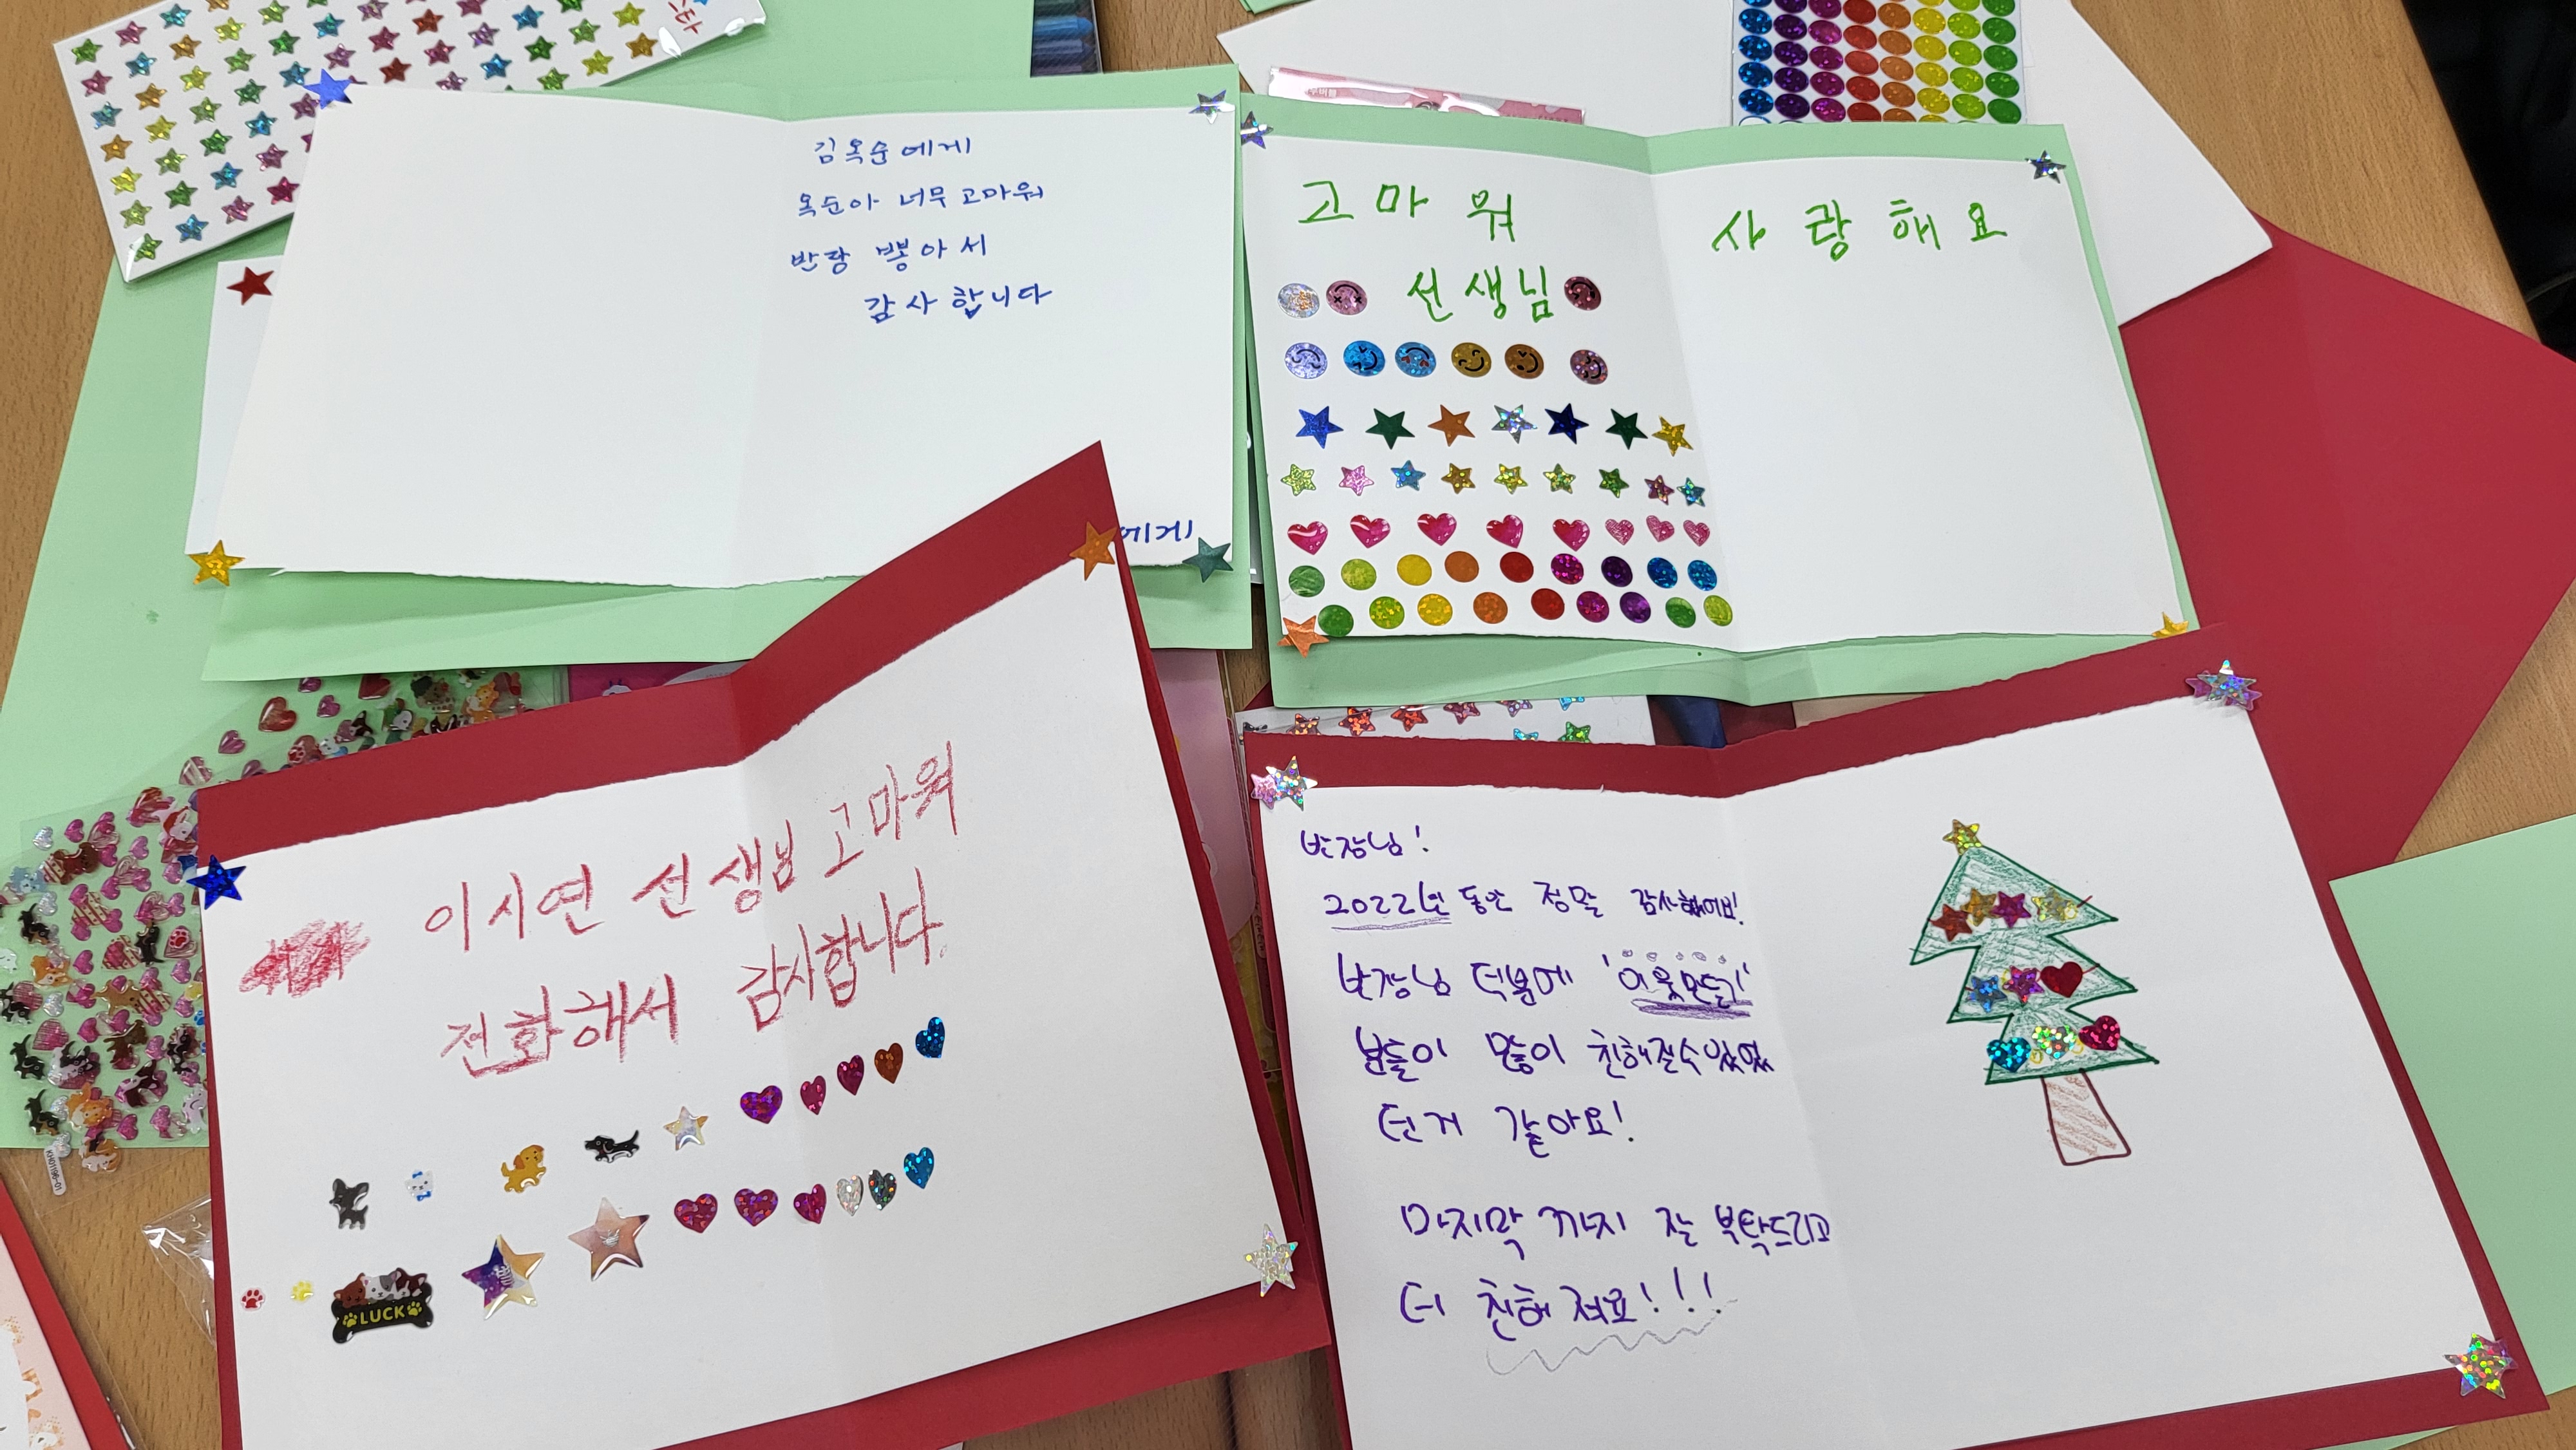 김옥순에게
옥순아 너무 고마워
반장 뽕아서
감사합니다
에게
고마워
선생님
사랑해요
이시연 선생님 고마워
전화해서 감사합니다.
LUCK
반장님!
2022년 동안 정말 감사했어요!
반장님 덕분에 '이웃만들기'
분들이 많이 친해질수있었
던거 같아요!
마지막까지 잘 부탁드리고
더 친해져요!!!